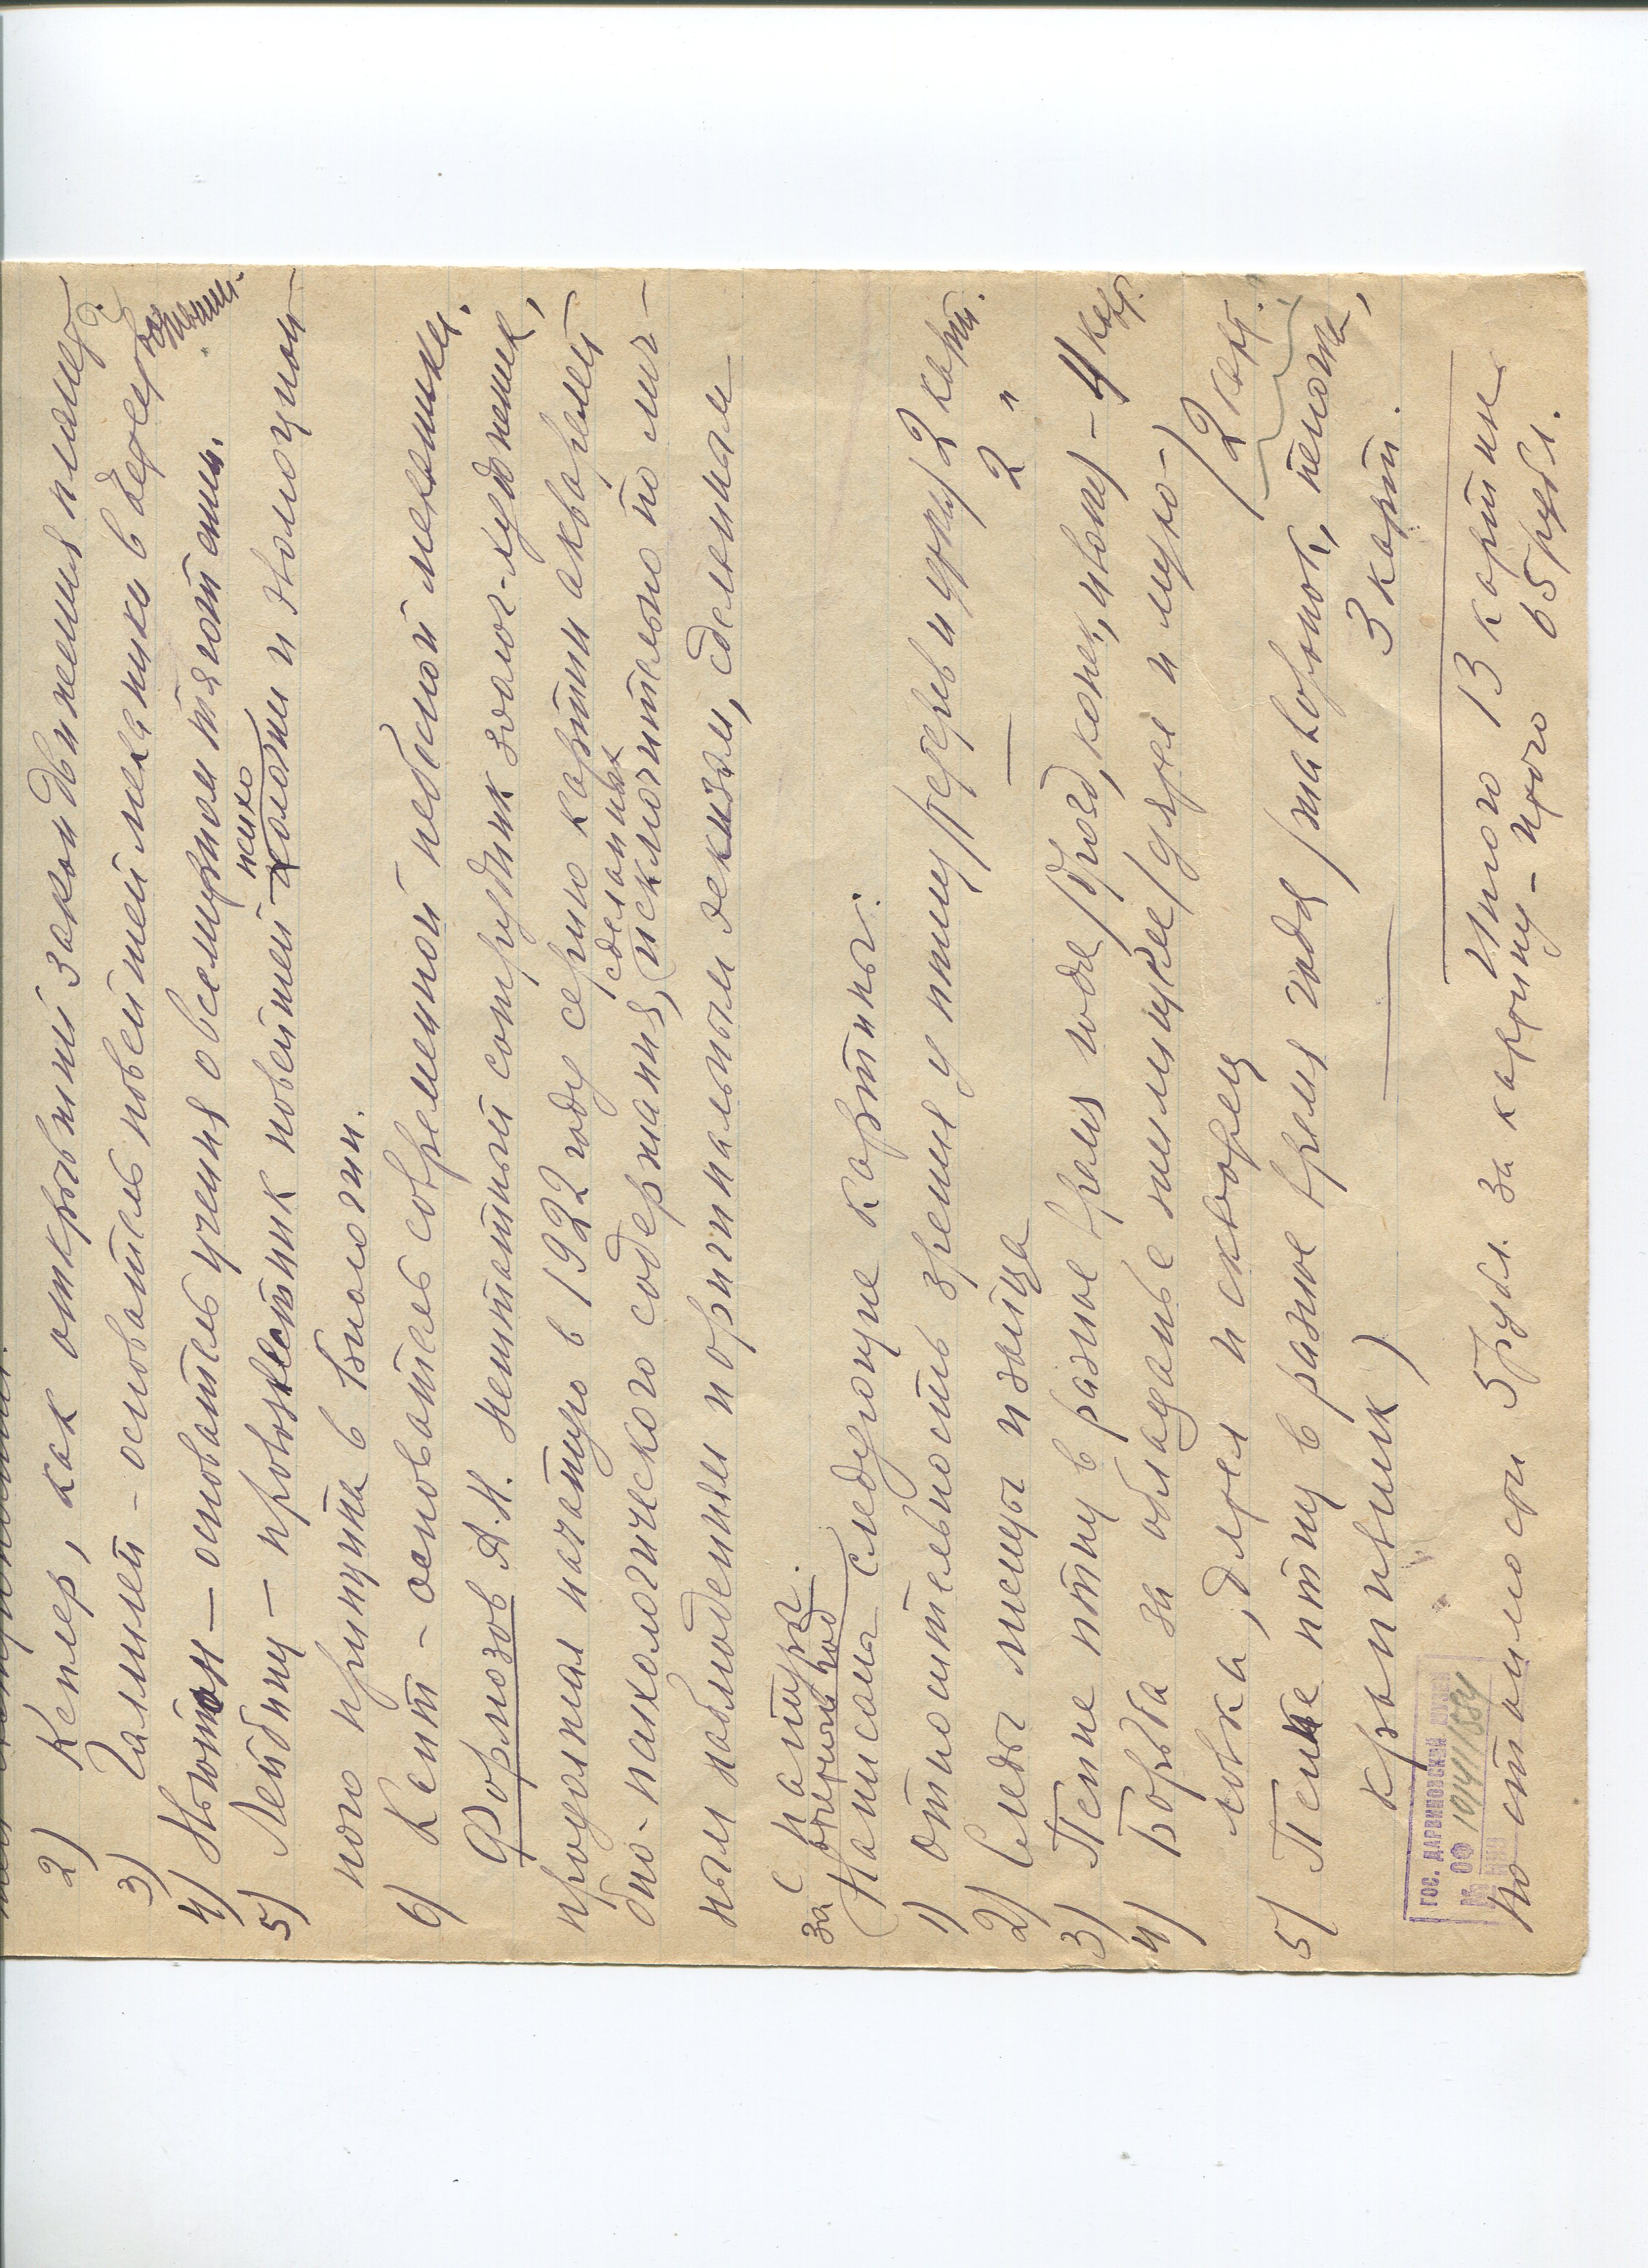 2) Кеплер, как открывший закон движения планет.
3) Галилей – основатель новейшей механики в
4) Ньютон – основатель учения о всемирном тяготении.
5) Лейбниц – провозвестник новейшей психо логии и эволюцион-
ного принципа в биологии.
6) Кант – основатель современной небесной механики.
Формозов А.Н. нештатный сотрудник зоолог-художник,
продолжал начатую в 1922 году серию картин акварелей
био-психологического содержания, (сделанных исключительно по лич-
ным наблюдениям и оригинальным эскизам, сделанным
с натуры.
за отчетный год
(Написаны следующие картины:
1) Относительность зрения у птиц /тетерев и 2 карт.
2) Следы лисицы и зайца 2 "
3) Пение птиц в разное время года /дрозд, конек, – 4 карт.
4) Борьба за обладание жилищем / дятел и мухо-
ловка, дятел и скворец /2 карт.
5) Пение птиц в разное время года / жаворонок,
крапивник) 3 карт.
Итого 13 картин
по стоимости 5 рубл. за картину – итого 65 рубл.
ГОС. ДАРВИНОВСКИЙ МУЗЕЙ
№ ОФ